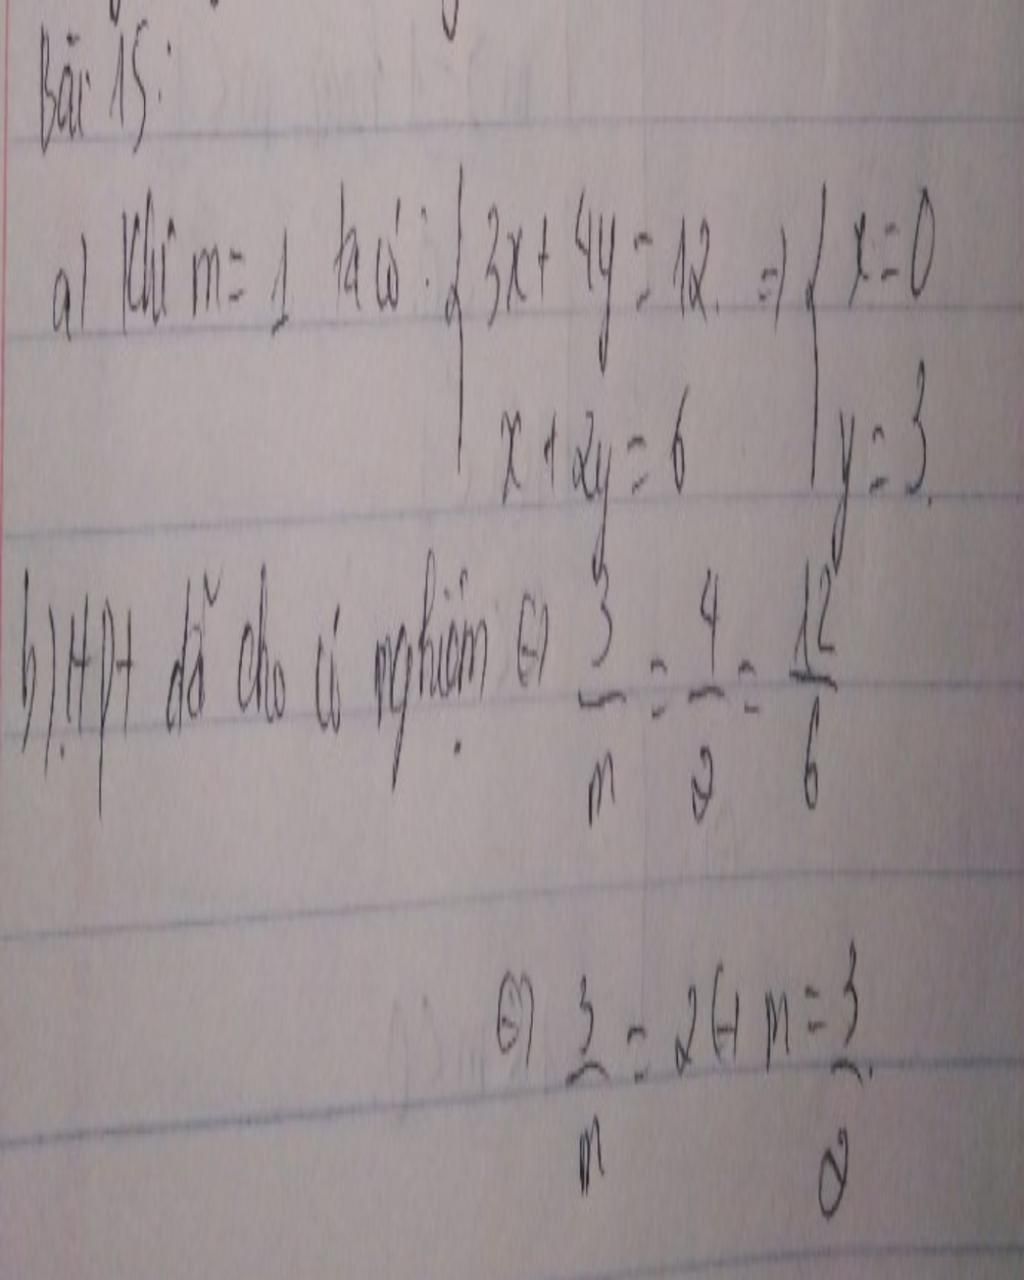 Bài 15:
a) Khi m = 1 ta có: { 3x + 4y = 12 => { x = 0
x + 2y = 6 y = 3.
b). Hpt đã cho có nghiệm <=> 3/m = 4/2 = 12/6
<=> 3/m = 2 <=> m = 3/2.